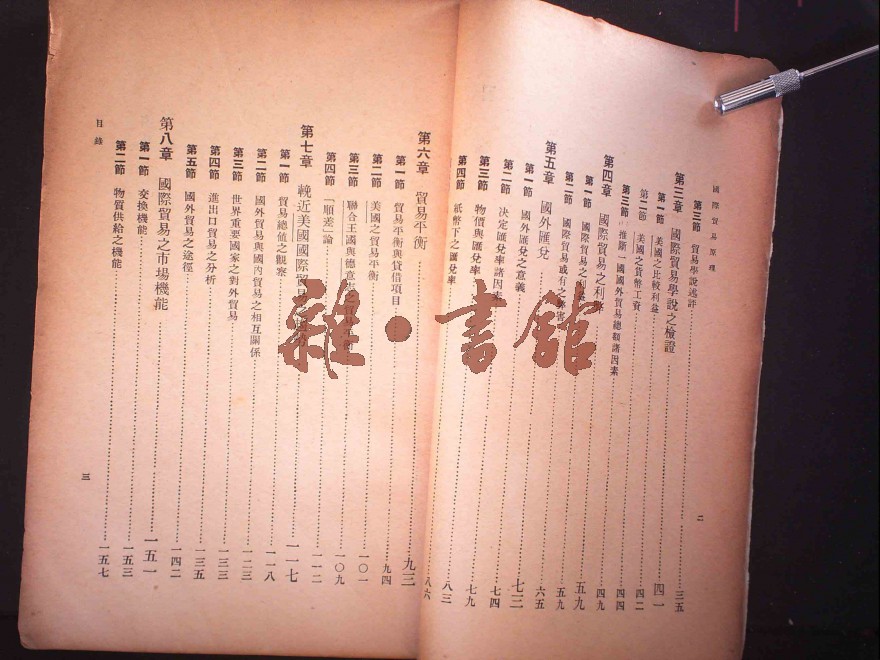 國際貿易原理
第三節 貿易學說述評 三五
第三章 國際貿易學說之檢證 四一
第一節 美國之比較利益 四二
第二節 美國之貨幣工資 四四
第三節 推斷一國國外貿易總額諸因素 四九
第四章 國際貿易之利 五九
第一節 國際貿易之利益 五九
第二節 國際貿易或有之 害 六五
第五章 國外匯兌 七三
第一節 國外匯兌之意義 七四
第二節 決定匯兌率諸因素 七九
第三節 物價與匯兌率 八三
第四節 紙幣下之匯兌率 八六
二
第六章 貿易平衡 九三
第一節 貿易平衡與貸借項目 九四
第二節 美國之貿易平衡 一〇一
第三節 聯合王國與德意志之 平衡 一〇九
第四節 「順差」論 一一二
第七章 輓近美國國際貿易 一一七
第一節 貿易總值之觀察 一一八
第二節 國外貿易與國內貿易之相互關係 一二三
第三節 世界重要國家之對外貿易 一三三
第四節 進出口貿易之分析 一三五
第五節 國外貿易之途徑 一四二
第八章 國際貿易之市場機能 一五一
第一節 交換機能 一五三
第二節 物質供給之機能 一五七
目錄
三
雜·書館